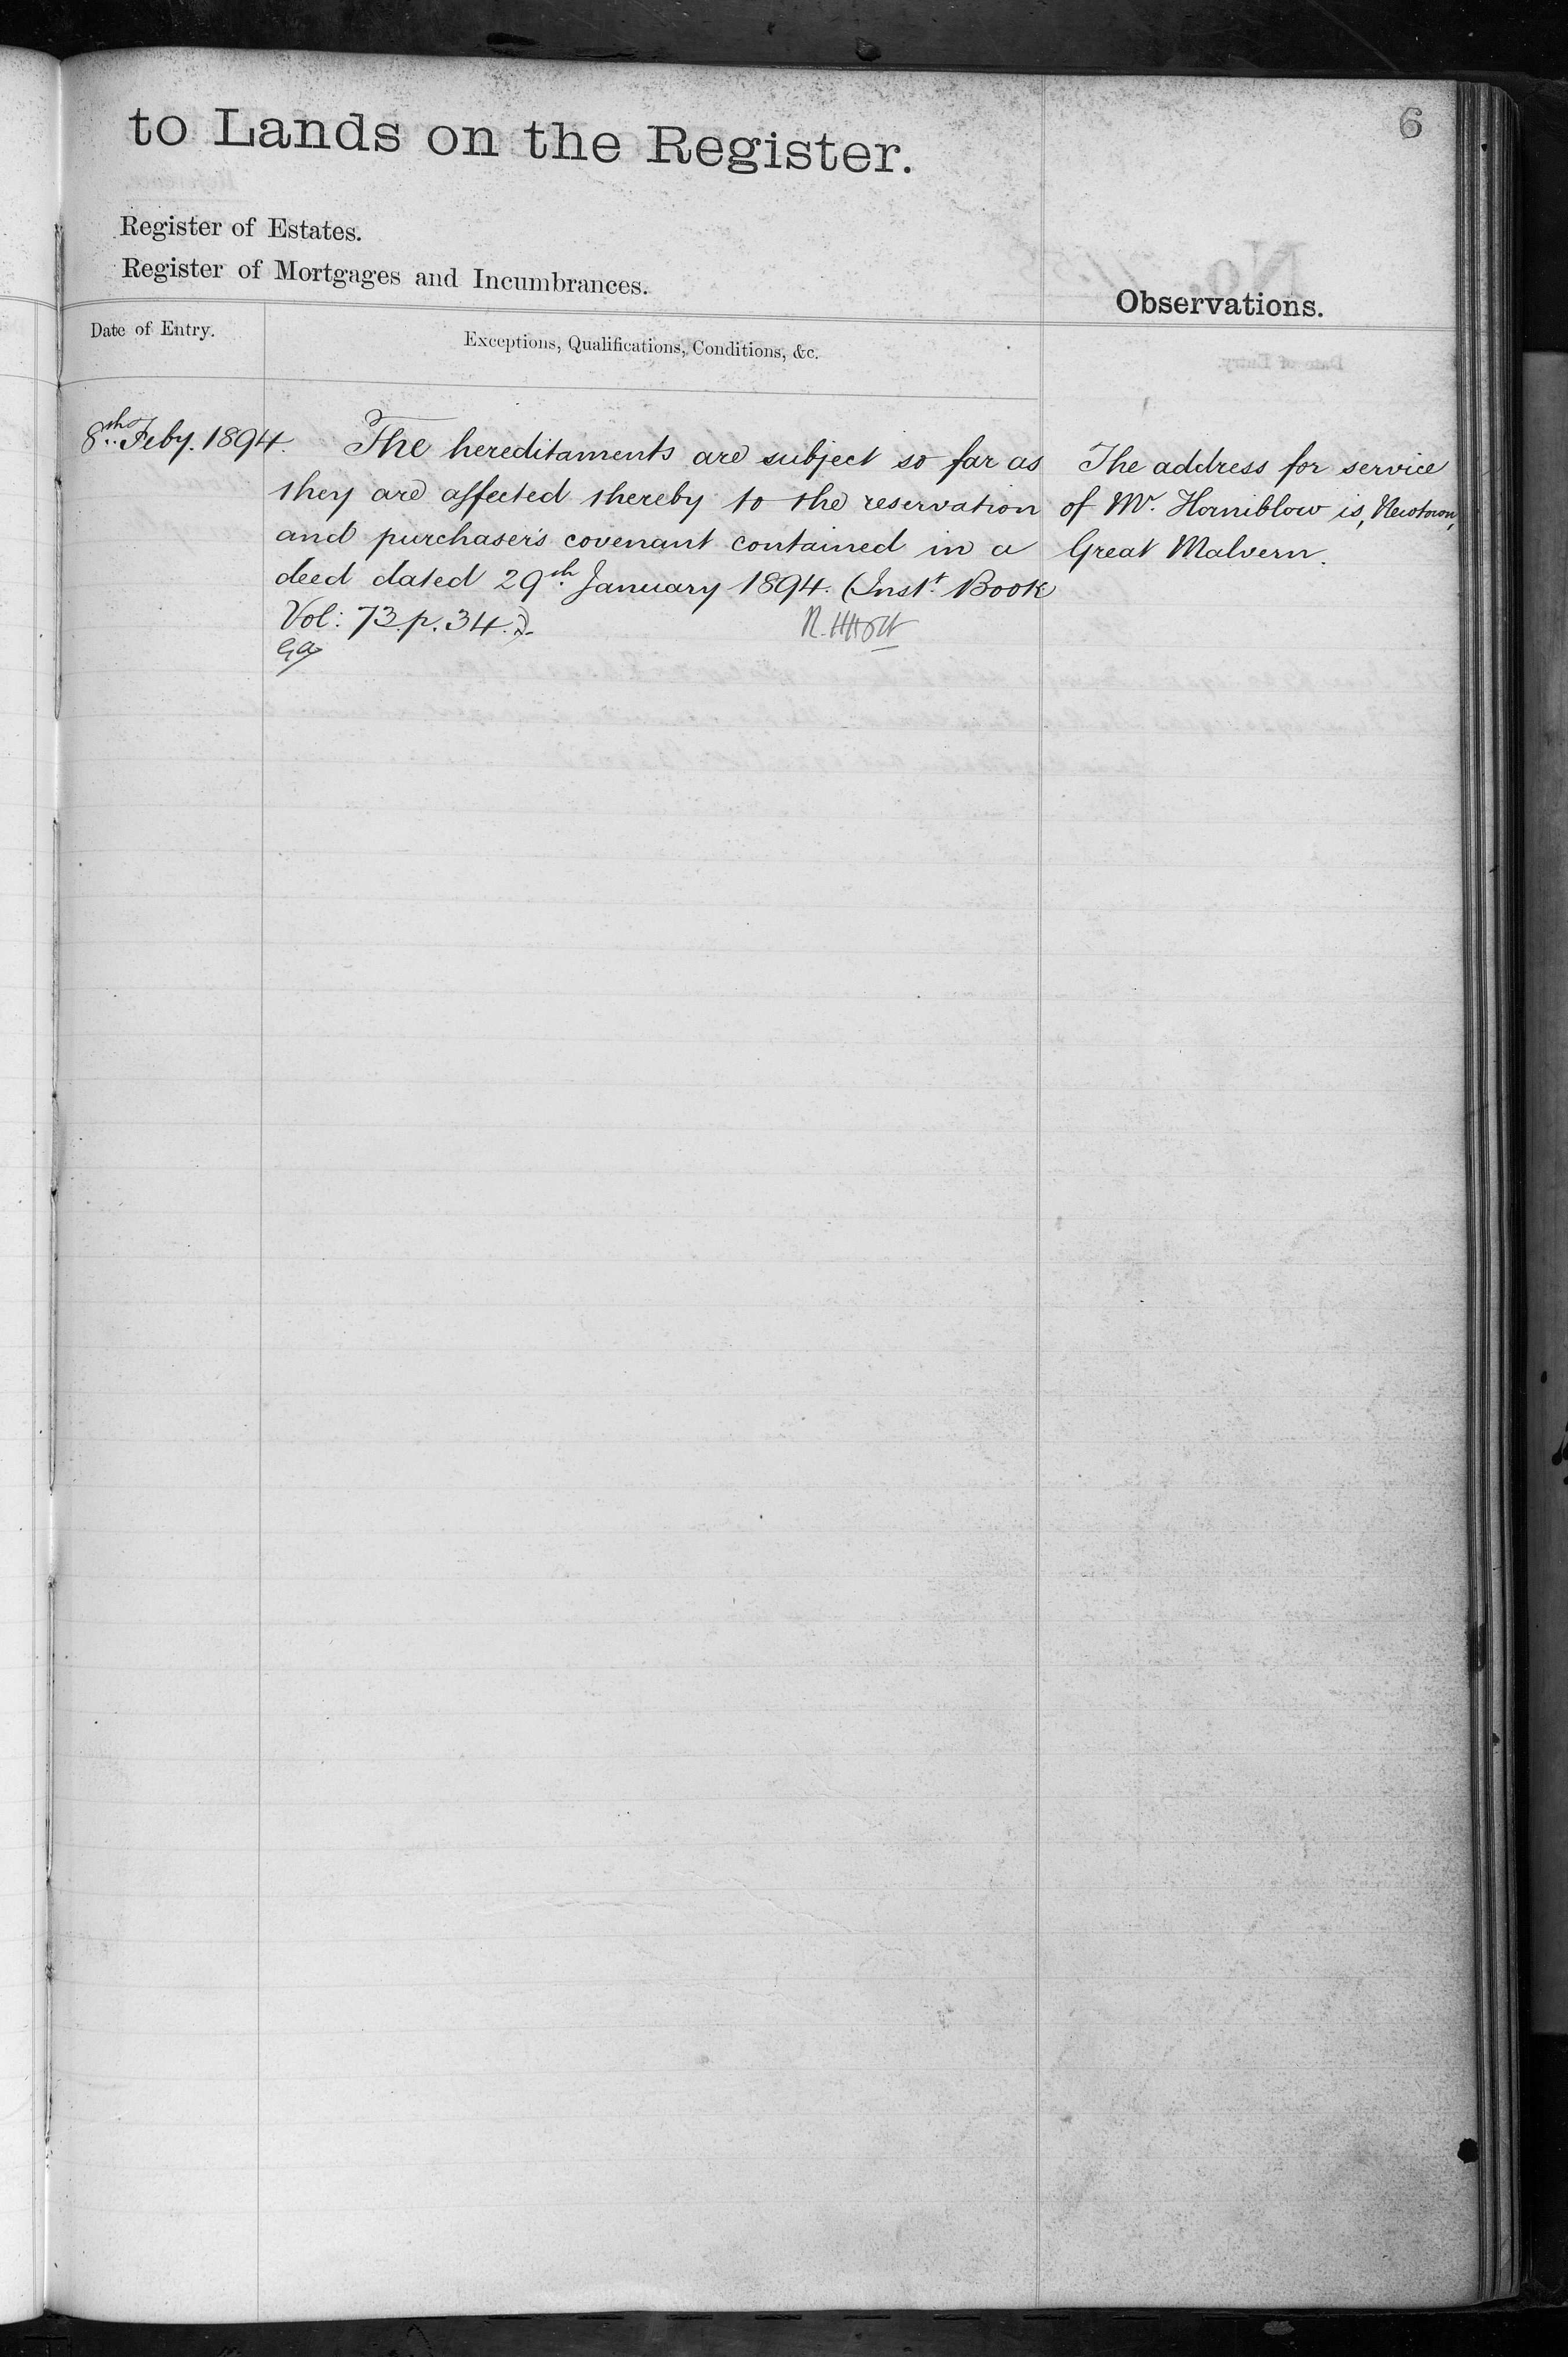 to Lands on the Register.
6
Register of Estates.
Register of Mortgages and Incumbrances.
Observations.
Date of Entry.
Exceptions, Qualifications, Conditions, &c.
8th Feby. 1894.
The hereditaments are subject so far as
they are affected thereby to the reservation
and purchaser's covenant contained in a
deed dated 29th January 1894. (Inst. Book
Vol: 73. p. 34.)
The address for service
of Mr. Horniblow is, Newtown,
Great Malvern.